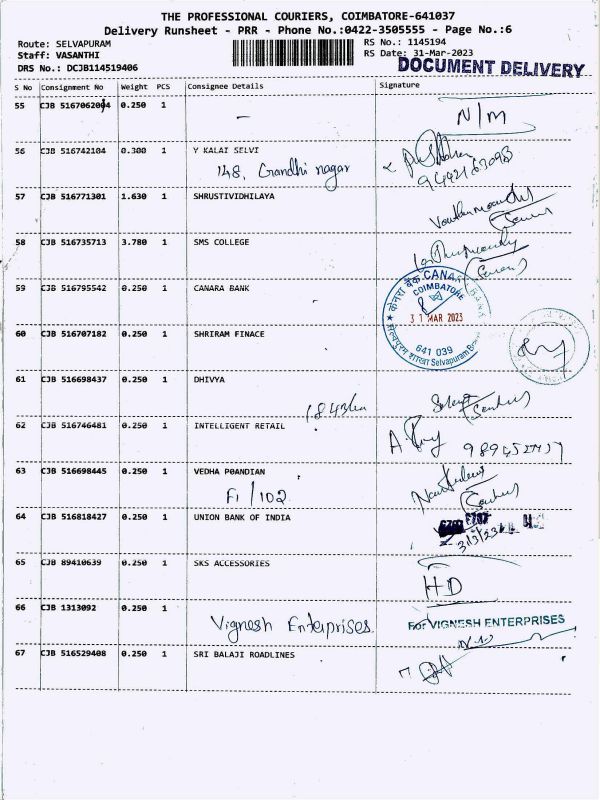 THE PROFESSIONAL COURIERS, COIMBATORE-641037
Delivery Runsheet - PRR - Phone No.:0422-3505555 - Page No.:6
Route: SELVAPURAM
RS No.: 1145194
Staff: VASANTHI
RS Date: 31-Mar-2023
DRS No.: DCJB114519406
DOCUMENT DELIVERY
S No Consignment No Weight PCS Consignee Details Signature
55 CJB 5167062004 0.250 1
N/M
56 CJB 516742104 0.300 1 Y KALAI SELVI
148, Gandhi nagar
57 CJB 516771301 1.630 1 SHRUSTIVIDHILAYA
58 CJB 516735713 3.780 1 SMS COLLEGE
59 CJB 516795542 0.250 1 CANARA BANK
केनरा बैंक CANARA BANK
COIMBATORE
31 MAR 2023
641 039
Selvapuram
60 CJB 516707182 0.250 1 SHRIRAM FINACE
61 CJB 516698437 0.250 1 DHIVYA
62 CJB 516746481 0.250 1 INTELLIGENT RETAIL
63 CJB 516698445 0.250 1 VEDHA POANDIAN
F1/102
64 CJB 516818427 0.250 1 UNION BANK OF INDIA
31/3/23
65 CJB 89410639 0.250 1 SKS ACCESSORIES
HD
66 CJB 1313092 0.250 1
Vignesh Enterprises
For VIGNESH ENTERPRISES
67 CJB 516529408 0.250 1 SRI BALAJI ROADLINES